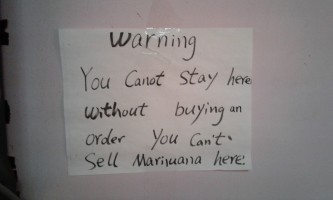 Warning
You Canot Stay here
without buying an
order You Can't
Sell Marijuana here.